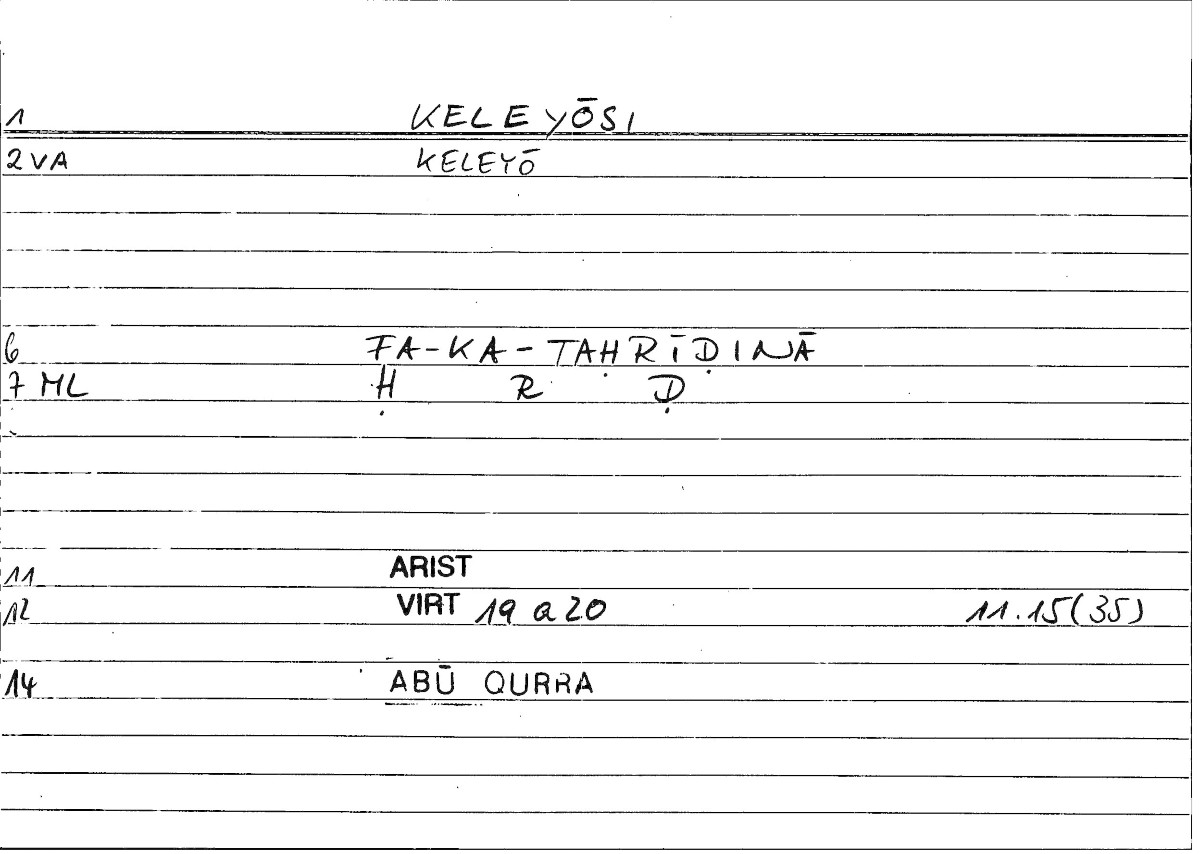 1 KELEYŌSI
2 VA KELEYŌ
6 FA-KA-TAḤRĪḌINĀ
7 ML Ḥ R Ḍ
11 ARIST
12 VIRT 19 a 20 11.15(35)
14 ABŪ QURRA